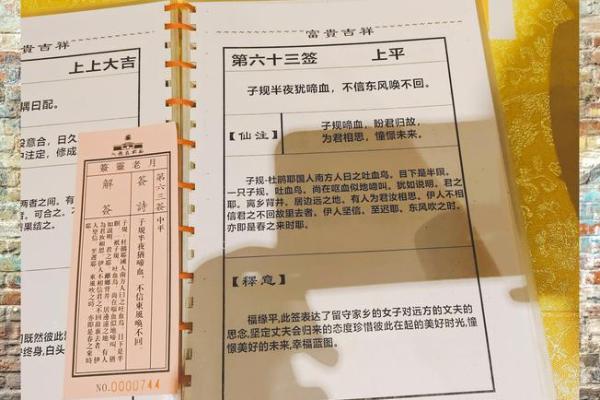 貴吉祥
上上大吉
隅曰配。
没意合，日久
中注定，修成
两者之间。有
可合之。
果结之。
既然彼此
终身，白头
月老靈簽
解簽
簽詩
第六三簽
中平
子規半夜猶啼血，不信東風喚不回。
NO.0000744
富貴吉祥
第六十三签 上平
子规半夜犹啼血，不信东风唤不回。
【仙注】
子规啼血，盼君归故，
为君相思，憧憬未来。
子规·杜鹃耶国人南方人日之吐血鸟。目下是半限。
一只子规，吐血鸟。尚在呕血似地啼叫。犹如说明，君之
耶。离乡背井。居边远之地。有人为君汝相思。伊人不相
信君之不回故里去者。伊人坚信。至迟耶。东风吹之时。
亦即是春之来时耶。
【释意】
福缘平，此签表达了留守家乡的女子对远方的丈夫的
思念,坚定丈夫会归来的态度珍惜彼此在起的美好时光,憧
憬美好的未来,幸福蓝图。